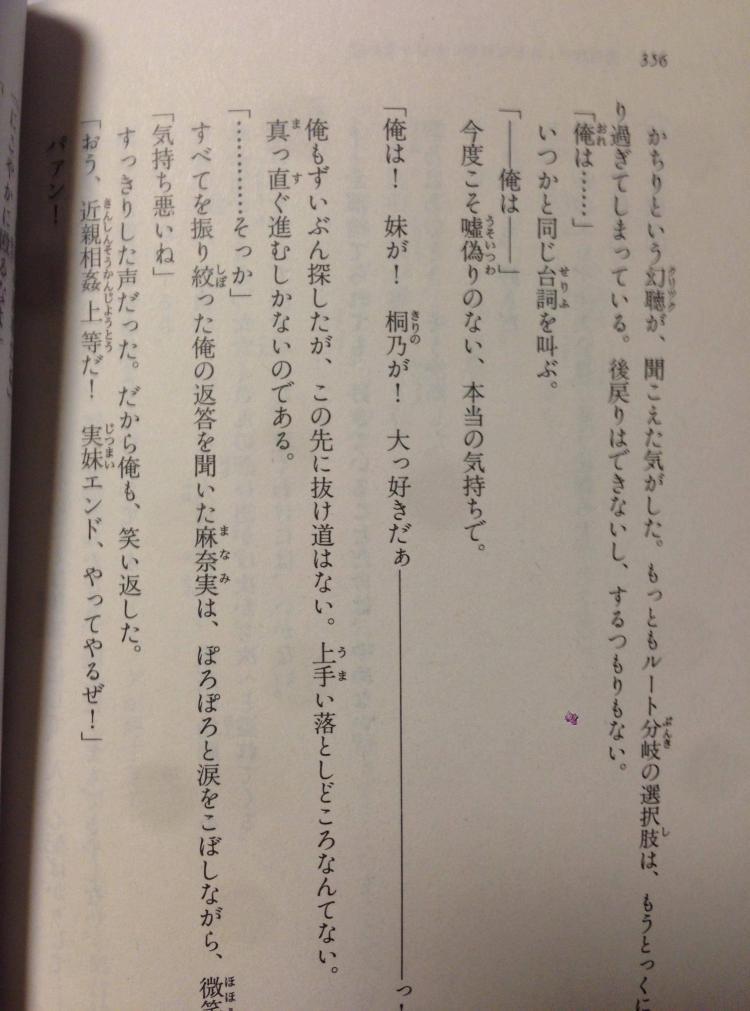 356
かちりという幻聴が、聞こえた気がした。もっともルート分岐の選択肢は、もうとっくに
り過ぎてしまっている。後戻りはできないし、するつもりもない。
「俺は……」
いつかと同じ台詞を叫ぶ。
「――俺は――」
今度こそ嘘偽りのない、本当の気持ちで。
「俺は！　妹が！　桐乃が！　大っ好きだぁ――――――――――っ！
俺もずいぶん探したが、この先に抜け道はない。上手い落としどころなんてない。
真っ直ぐ進むしかないのである。
「…………そっか」
すべてを振り絞った俺の返答を聞いた麻奈実は、ぽろぽろと涙をこぼしながら、微笑
「気持ち悪いね」
すっきりした声だった。だから俺も、笑い返した。
「おう、近親相姦上等だ！　実妹エンド、やってやるぜ！」
パァン！
「にこやかに